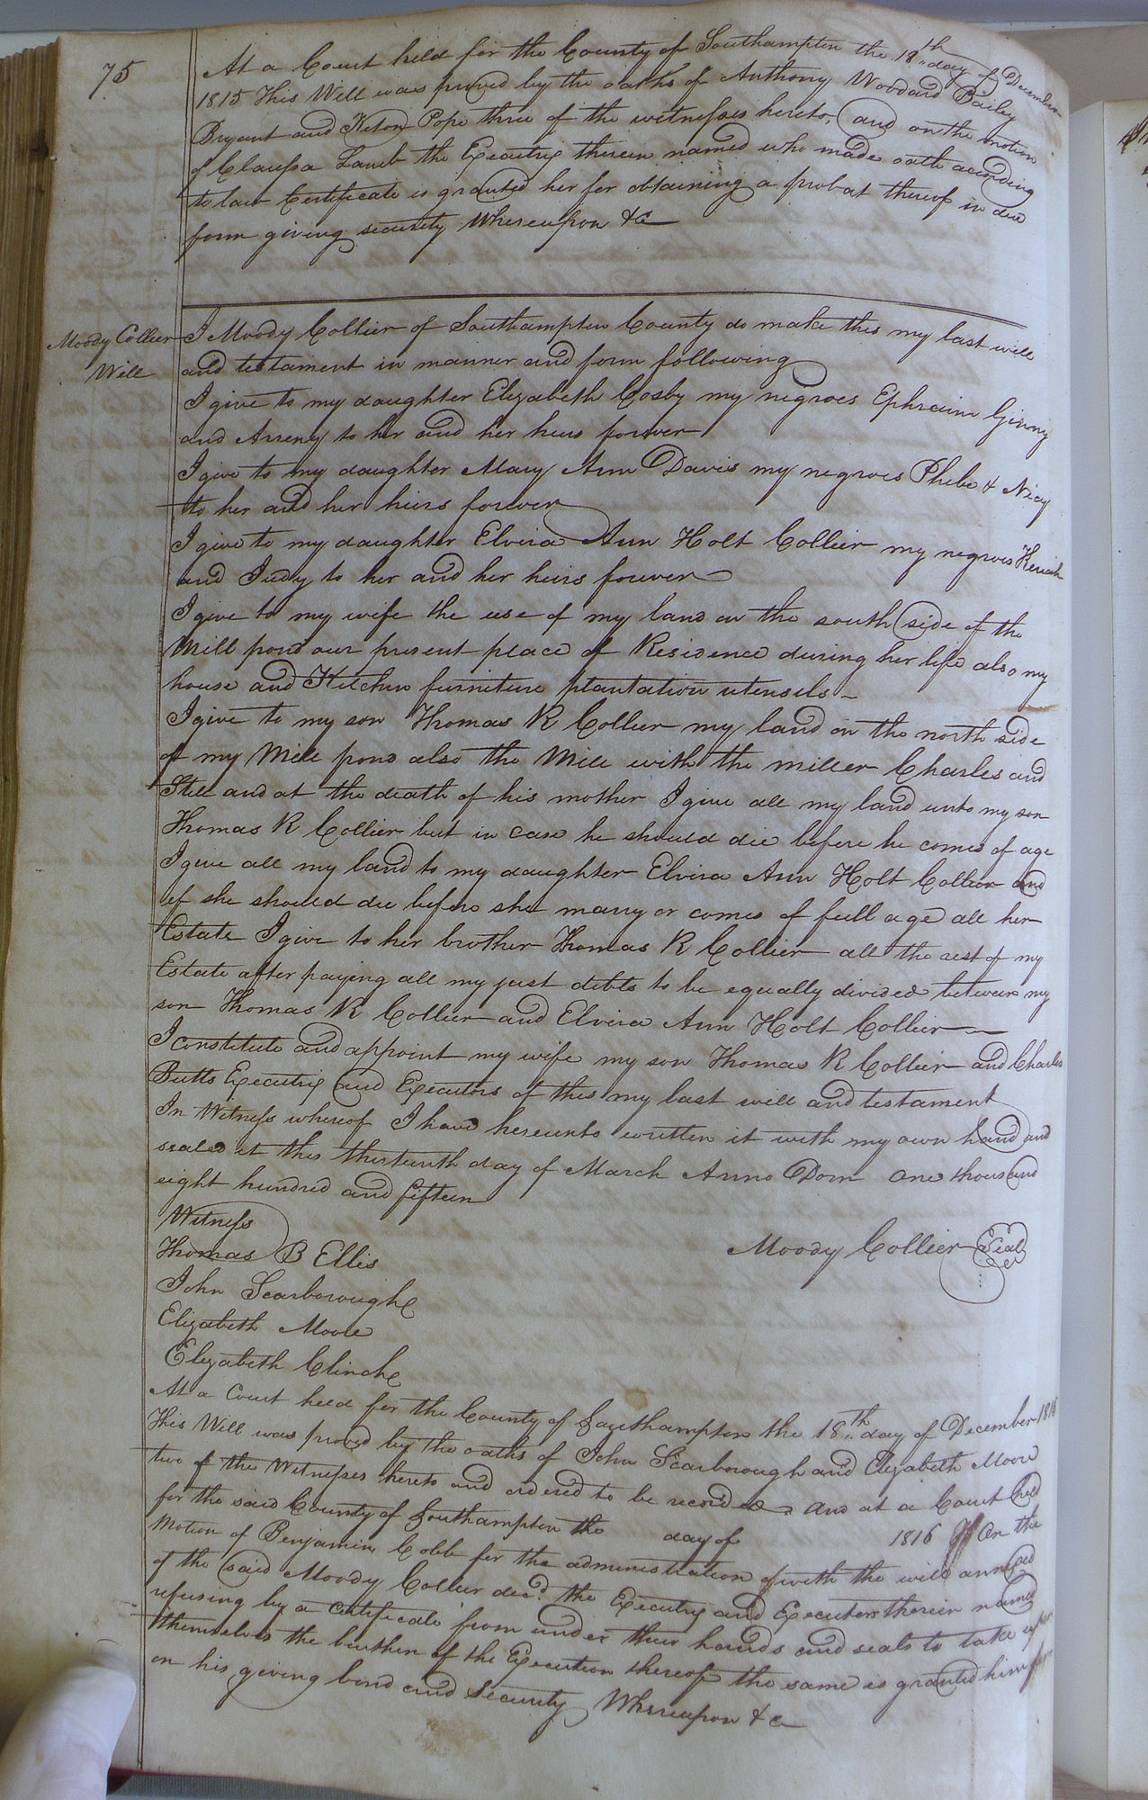 75
At a Court held for the County of Southampton the 18th day of December
1815 This Will was proved by the oaths of Anthony Woodard Baily
Bryant and Keton Pope three of the witnesses hereto, and on the motion
of Claressa Lamb the Executrix therein named who made oath according
to law Certificate is granted her for obtaining a probat thereof in due
form giving security Whereupon &c
Moody Collier
Will
I Moody Collier of Southampton County do make this my last will
and testament in manner and form following
I give to my daughter Elizabeth Cosby my negroes Ephraim Ginny
and Arreny to her and her heirs forever
I give to my daughter Mary Ann Davis my negroes Phebe & Nicy
to her and her heirs forever
I give to my daughter Elvira Ann Holt Collier my negroes Keziah
and Judy to her and her heirs forever
I give to my wife the use of my land on the south side of the
Mill pond our present place of Residence during her life also my
house and Kitchen furniture plantation utensils
I give to my son Thomas R Collier my land on the north side
of my Mill pond also the Mill with the miller Charles and
Still and at the death of his mother I give all my land unto my son
Thomas R Collier but in case he should die before he comes of age
I give all my land to my daughter Elvira Ann Holt Collier and
if she should die before she marry or comes of full age all her
Estate I give to her brother Thomas R Collier all the rest of my
Estate after paying all my just debts to be equally divided between my
son Thomas R Collier and Elvira Ann Holt Collier
I constitute and appoint my wife my son Thomas R Collier and Charles
Butts Executrix and Executors of this my last will and testament
In Witness whereof I have hereunto written it with my own hand and
sealed it this thirteenth day of March Anno Dom one thousand
eight hundred and fifteen
Witness
Thomas B Ellis
Moody Collier Seal
John Scarborough
Elizabeth Moore
Elizabeth Clinch
At a Court held for the County of Southampton the 18th day of December
This Will was proved by the oaths of John Scarborough and Elizabeth Moore
two of the Witnesses hereto and ordered to be recorded. And at a Court held
for the said County of Southampton the day of 1816 On the
Motion of Benjamin Cobb for the administration of with the will annexed
of the said Moody Collier decd. the Executrix and Executors therein named
refusing by a certificate from under their hands and seals to take upon
themselves the burthen of the Execution thereof the same is granted him
on his giving bond and Security Whereupon &c